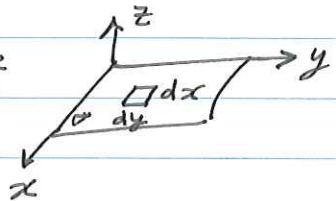 z
y
dx
dy
x